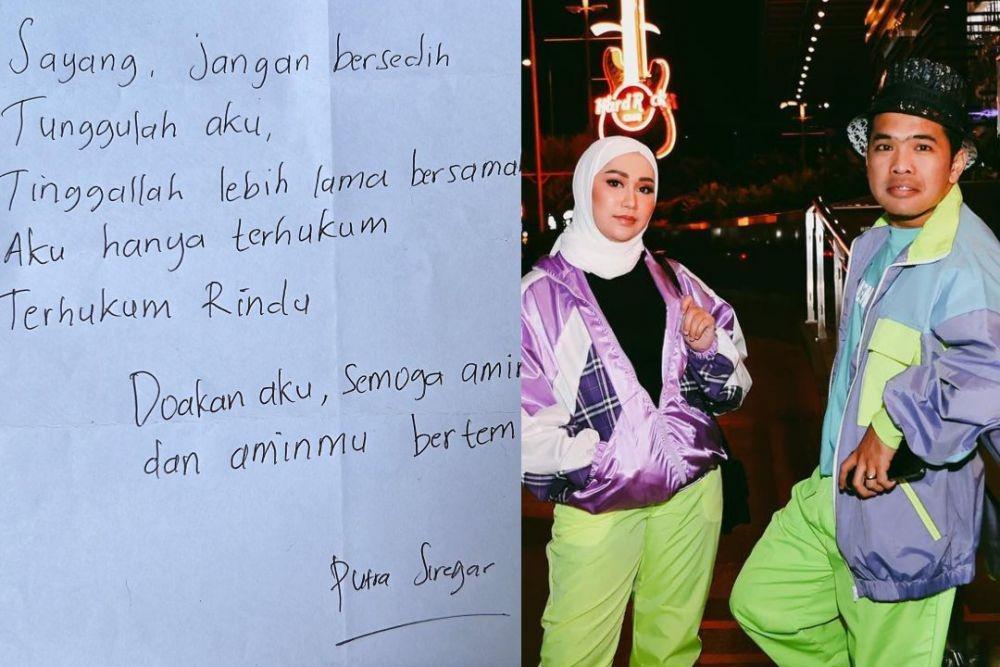 Sayang, jangan bersedih
Tunggulah aku,
Tinggallah lebih lama bersama
Aku hanya terhukum
Terhukum Rindu
Doakan aku, semoga amin
dan aminmu bertem
Putra Siregar
Hard Rock